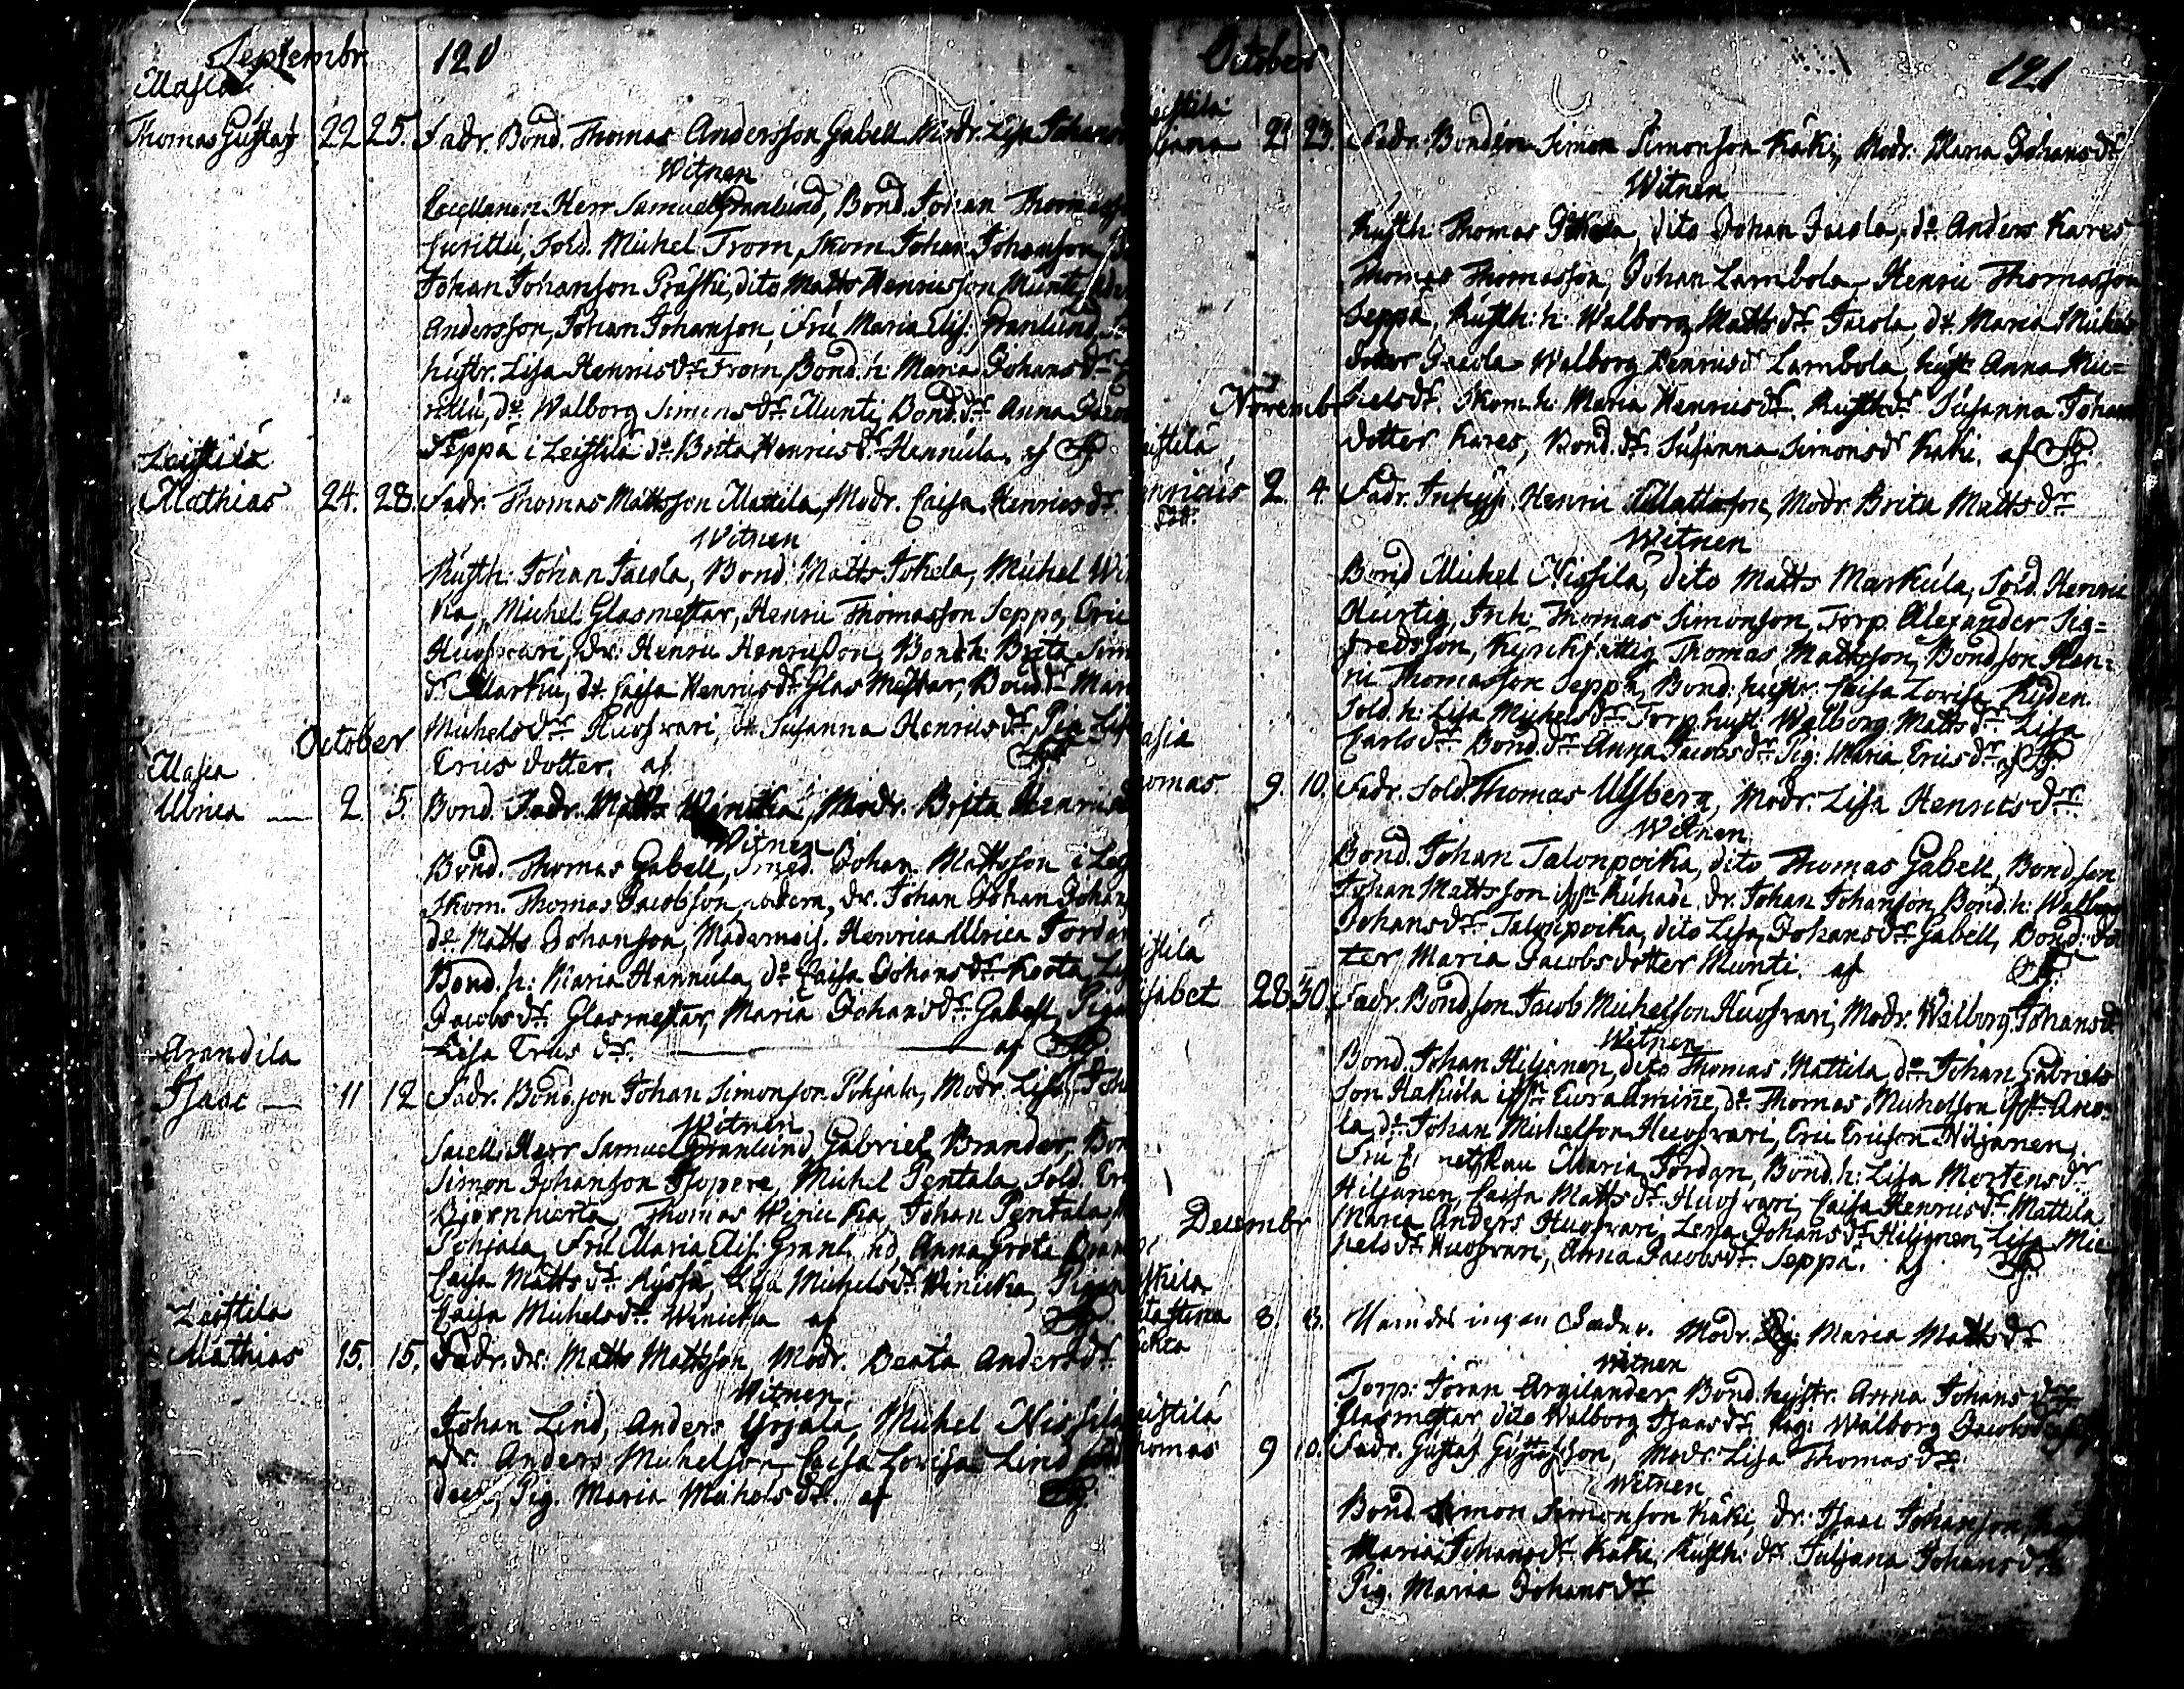 Septembr 120
Masia
Thomas Gustaf 22 25. Fadr. Bond. Thomas Andersson Gabell Modr. Lisa Johans
Witnen
Capellanen Herr Samuel Granlund, Bond. Johan Thomasson
Sold. Michel From, Skom. Johan Johanson,
Johan Johanson Präski, dito Matts Henricsson Munti,
Andersson, Johan Johanson, Fru Maria Elis. Granlund,
hustr. Lisa Henricsdr From, Bond. h: Maria Johansdr
do Walborg Simonsdr Munti, Bond. dr Anna Jacob
Seppä i Leistilä do Brita Henricsdr Hannula. af
Leistilä
Mathias 24. 28. Fadr. Thomas Mattsson Mattila, Modr. Caisa Henricsdr
Witnen
Rusth: Johan Jacola, Bond: Matts Jokela, Michel Wi
ka, Michel Glasmestar, Henric Thomasson Seppä, Eric
Huosvari, dr: Henric Henricson, Bond. h: Brita Sim
dr Markku, do Caisa Henricsdr Glas Mestar, Bond. dr Mar
Michelsdr Huosvari, do Susanna Henricsdr, Pig. Lis
Erics dotter. af
October
Masia
Ulrica 2. 5. Bond. Fadr. Matts Winicka, Modr. Brita Henricsd
Witnen
Bond. Thomas Gabell, Smed. Johan Mattsson i Leis
Skom. Thomas Jacobson, dr. Johan Johan Johans
do Matts Johanson, Mademois. Henrica Ulrica Fordon
Bond. h: Maria Hannula, do Caisa Johansdr Koota, Lis
Jacobsdr Glasmestar, Maria Johansdr Gabell, Piga
Lisa Erics dr. af
Arandila
Isaac 11 12 Fadr. Bondson Johan Simonson Pohjala, Modr. Lisa Joha
Witnen
Sacell: Herr Samuel Granlund, Gabriel Brander, Bon
Simon Johanson Isopere, Michel Pentala, Sold. Er
Björnhierta, Thomas Winicka, Johan Pentala,
Pohjala, Fru Maria Elis. Granlund, Anna Greta Bran
Caisa Mattsdr Ryssä, Lisa Michelsdr Winicka, Pigan
Caisa Michelsdr Winicka af
Leistila
Mathias 15. 15. Fadr. dr: Matts Mattsson, Modr. Beata Andersdr
Witnen
Johan Lind, Anders Yrjälä, Michel Nissilä
dr. Anders Michelson, Caisa Lovisa Lind
Pig. Maria Michelsdr. af
October 121
eistila
ljana 21 23. Fadr: Bonden Simon Simonson Käki, Modr. Maria Johansdr
Witnen
Rusth: Thomas Jokela, dito Johan Jacola, do Anders Kares
Thomas Thomasson, Johan Lambola, Henric Thomasson
Seppä, Rusth: h: Walborg Mattsdr Jacola, do Maria Michels
dotter Jacola Walborg Henricsdr Lambola, hust. Anna Mic=
kelsdr. Skom. h: Maria Henricsdr. Rusth. dr Susanna Johans
dotter Kares, Bond. dr. Susanna Simonsdr Käki. af
Novembr
eistilä
nricus 2 4 Fadr. Inhys. Henric Mattsson, Modr. Brita Mattsdr
Witnen
Bond Michel Nissilä, dito Matts Markula, Sold. Henric
Hurtig, Inh. Thomas Simonson, Torp. Alexander Sig=
fredsson, Kyrckfattig Thomas Mattsson, Bondson Hen=
ric Thomasson Seppä, Bond. hustr. Caisa Lovisa Ryden
Sold. h: Lisa Michelsdr Torp. hust. Walborg Mattsdr Lisa
Carlsdr. Bond. dr Anna Jacobsdr Pig: Maria Ericsdr af
asia
omas 9. 10. Fadr. Sold. Thomas Ulsberg, Modr. Lisa Henricsdr
Witnen
Bond. Johan Talonpoika, dito Thomas Gabell, Bondson
Johan Mattsson, dr. Johan Johanson, Bond. h: Walborg
Johansdr Talonpoika, dito Lisa Johansdr Gabell, Bond: dot
ter Maria Jacobsdotter Munti. af
istila
isabet 28 30. Fadr. Bondson Jacob Michelson Huosvari, Modr. Walborg Johansd
Witnen
Bond. Johan Hiljanen, dito Thomas Mattila, do Johan Gabriels
son Kakula i Eura Aminne, do Thomas Michelson
la, do Johan Michelson Huosvari, Eric Ericson Hiljanen
Fru Maria Fordon, Bond. h: Lisa Mortensdr
Hiljanen Caisa Mattsdr Huosvari, Caisa Henricsdr Mattila
Maria Anders Huosvari, Lena Johansdr Hiljanen, Lisa Mic
helsdr Huosvari, Anna Jacobsdr Seppä. af
Decembr
8. 8. Namdes ingen Fader. Modr. Pig: Maria Mattsdr
Witnen
Torp: Jöran Argilander, Bond. hustr. Anna Johansdr
Glasmestar dito Walborg Isaacsdr Pig: Walborg Jacobsdr
eistilä
homas 9 10. Fadr. Gustaf Gustafsson, Modr: Lisa Thomasdr
Witnen
Bond. Simon Simonson Käki, dr: Isaac Johanson,
Maria Johansdr Käki, Rusth: dr Juljana Johansdr
Pig. Maria Johansdr